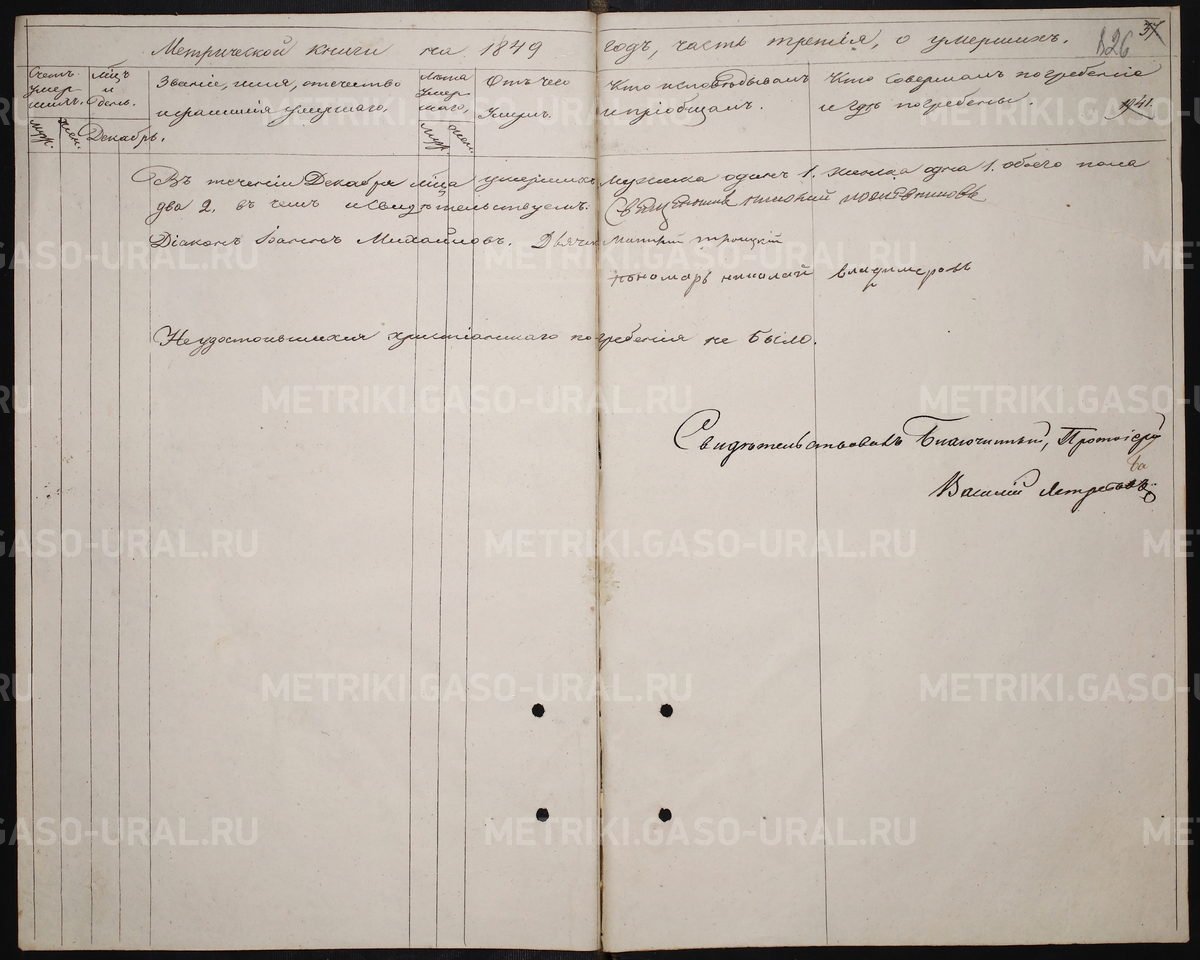 Метрической книги на 1849 годъ, часть третія, о умершихъ.
126
37
1941.
Счетъ умершихъ.
муж.
жен.
Мѣсяцъ и день.
Званіе, имя, отчество и фамилія умершаго.
Лѣта умершаго.
муж.
жен.
Отъ чего умеръ.
Кто исповѣдывалъ и пріобщалъ.
Кто совершалъ погребеніе и гдѣ погребены.
Декабрь.
Въ теченіи Декабря мца умершихъ мужеска одинъ 1. женска одна 1. обоего пола
два 2, въ чемъ и свидѣтельствуемъ. Священникъ
Діаконъ Іоаннъ Михайловъ. Дьячекъ Троицкій
пономарь николай владимеровъ
Неудостоившихся христіанскаго погребенія не было.
Свидѣтельствовалъ Благочинный, Протоіерей
Василій
METRIKI.GASO-URAL.RU